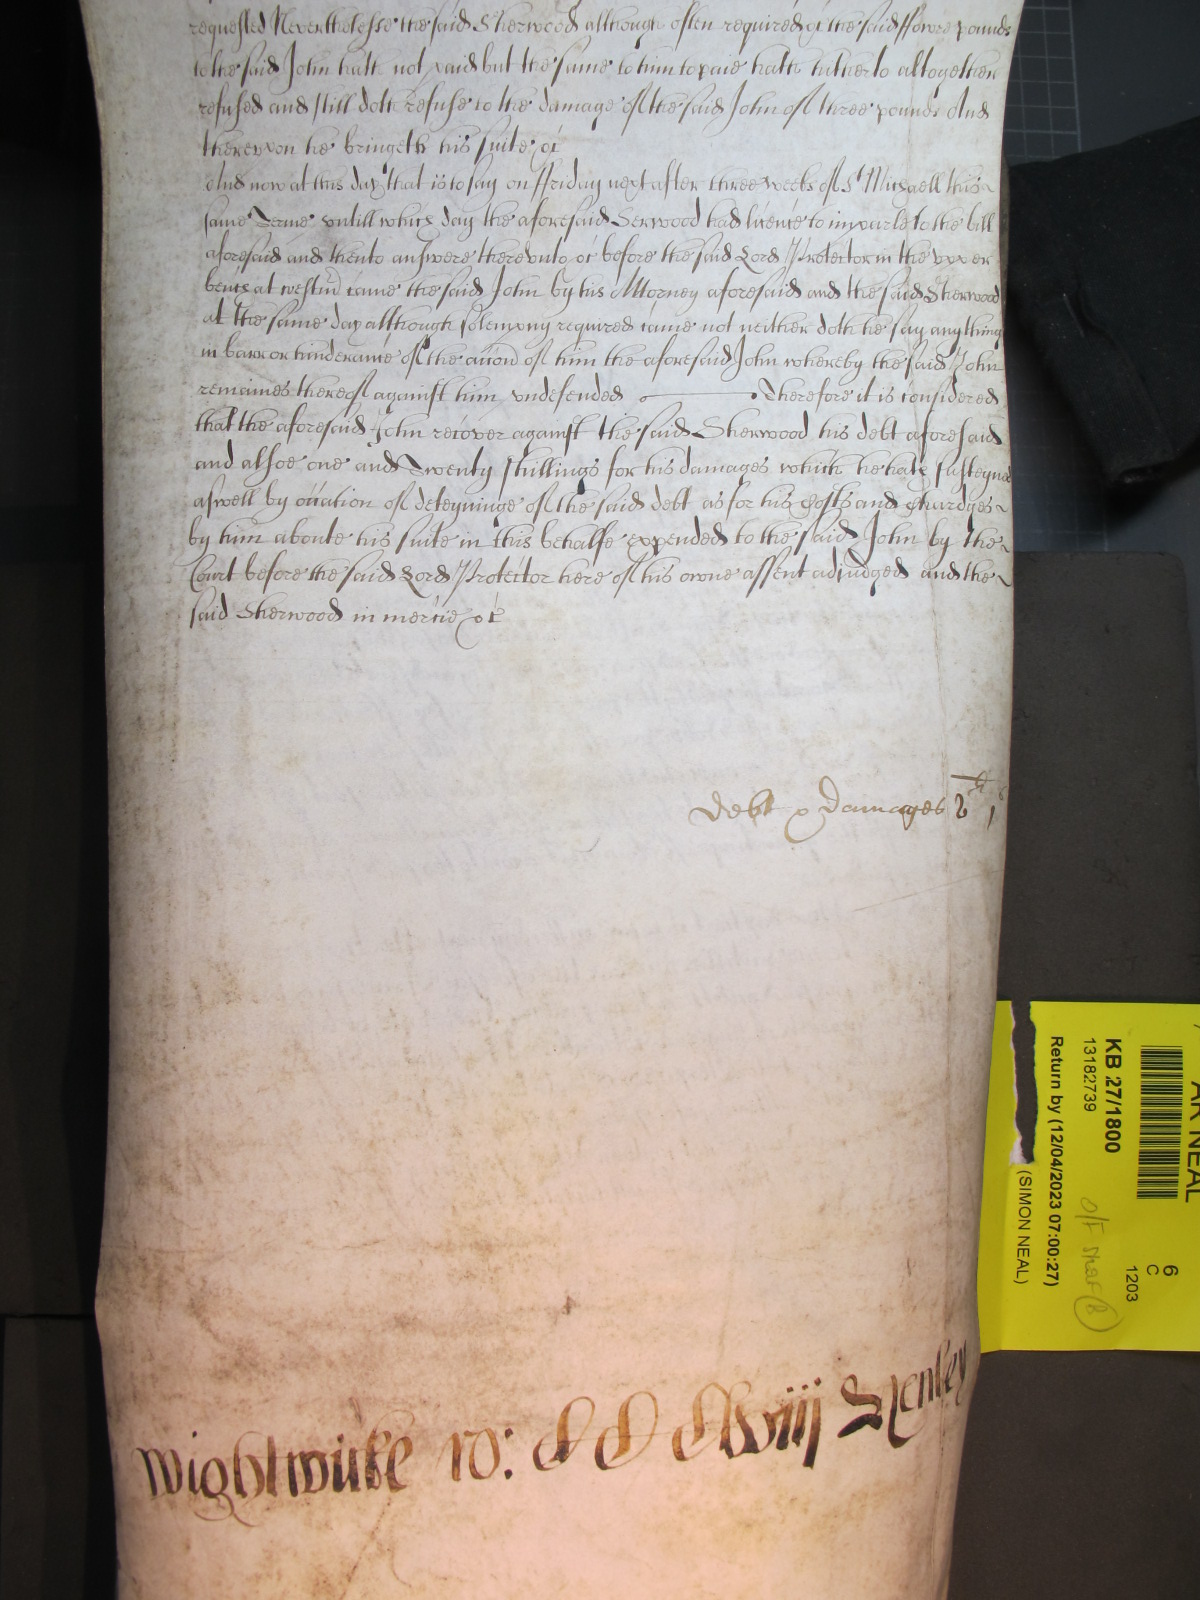 requested Neverthelesse the said Sherwood although often required the said ffowre pounds
to the said John hath not paid but the same to him to paie hath hitherto altogether
refused and still doth refuse to the damage of the said John of three pounds And
therevpon he bringeth his suite &c
And now at this day that is to say on ffriday next after three weeks of St Michaell this
same Terme vntill which day the aforesaid Serwood had licence to imparle to the bill
aforesaid and then to answere therevnto &c before the said Lord Protector in the vpper
bench at westm came the said John by his Attorney aforesaid and the said Sherwood
at the same day although solempny required came not neither doth he say any thing
in barr or hinderance of the accon of him the aforesaid John whereby the said John
remaines thereof against him vndefended Therefore it is considered
that the aforesaid John recover against the said Sherwood his debt aforesaid
and alsoe one and Twenty shillings for his damages which he hath susteyned
aswell by occation of deteyninge of the said debt as for his Costs and Chardges
by him aboute his suite in this behalfe expended to the said John by the
Court before the said Lord Protector here of his owne assent adjudged and the
said Sherwood in mercie &c
Debt & Damages
Wightwicke w:
Henley
KB 27/1800
13182739
Return by (12/04/2023 07:00:27)
(SIMON NEAL)
6
C
1203